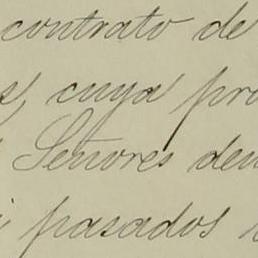 contrato de
s, cuya pro
Señores den
i pasados